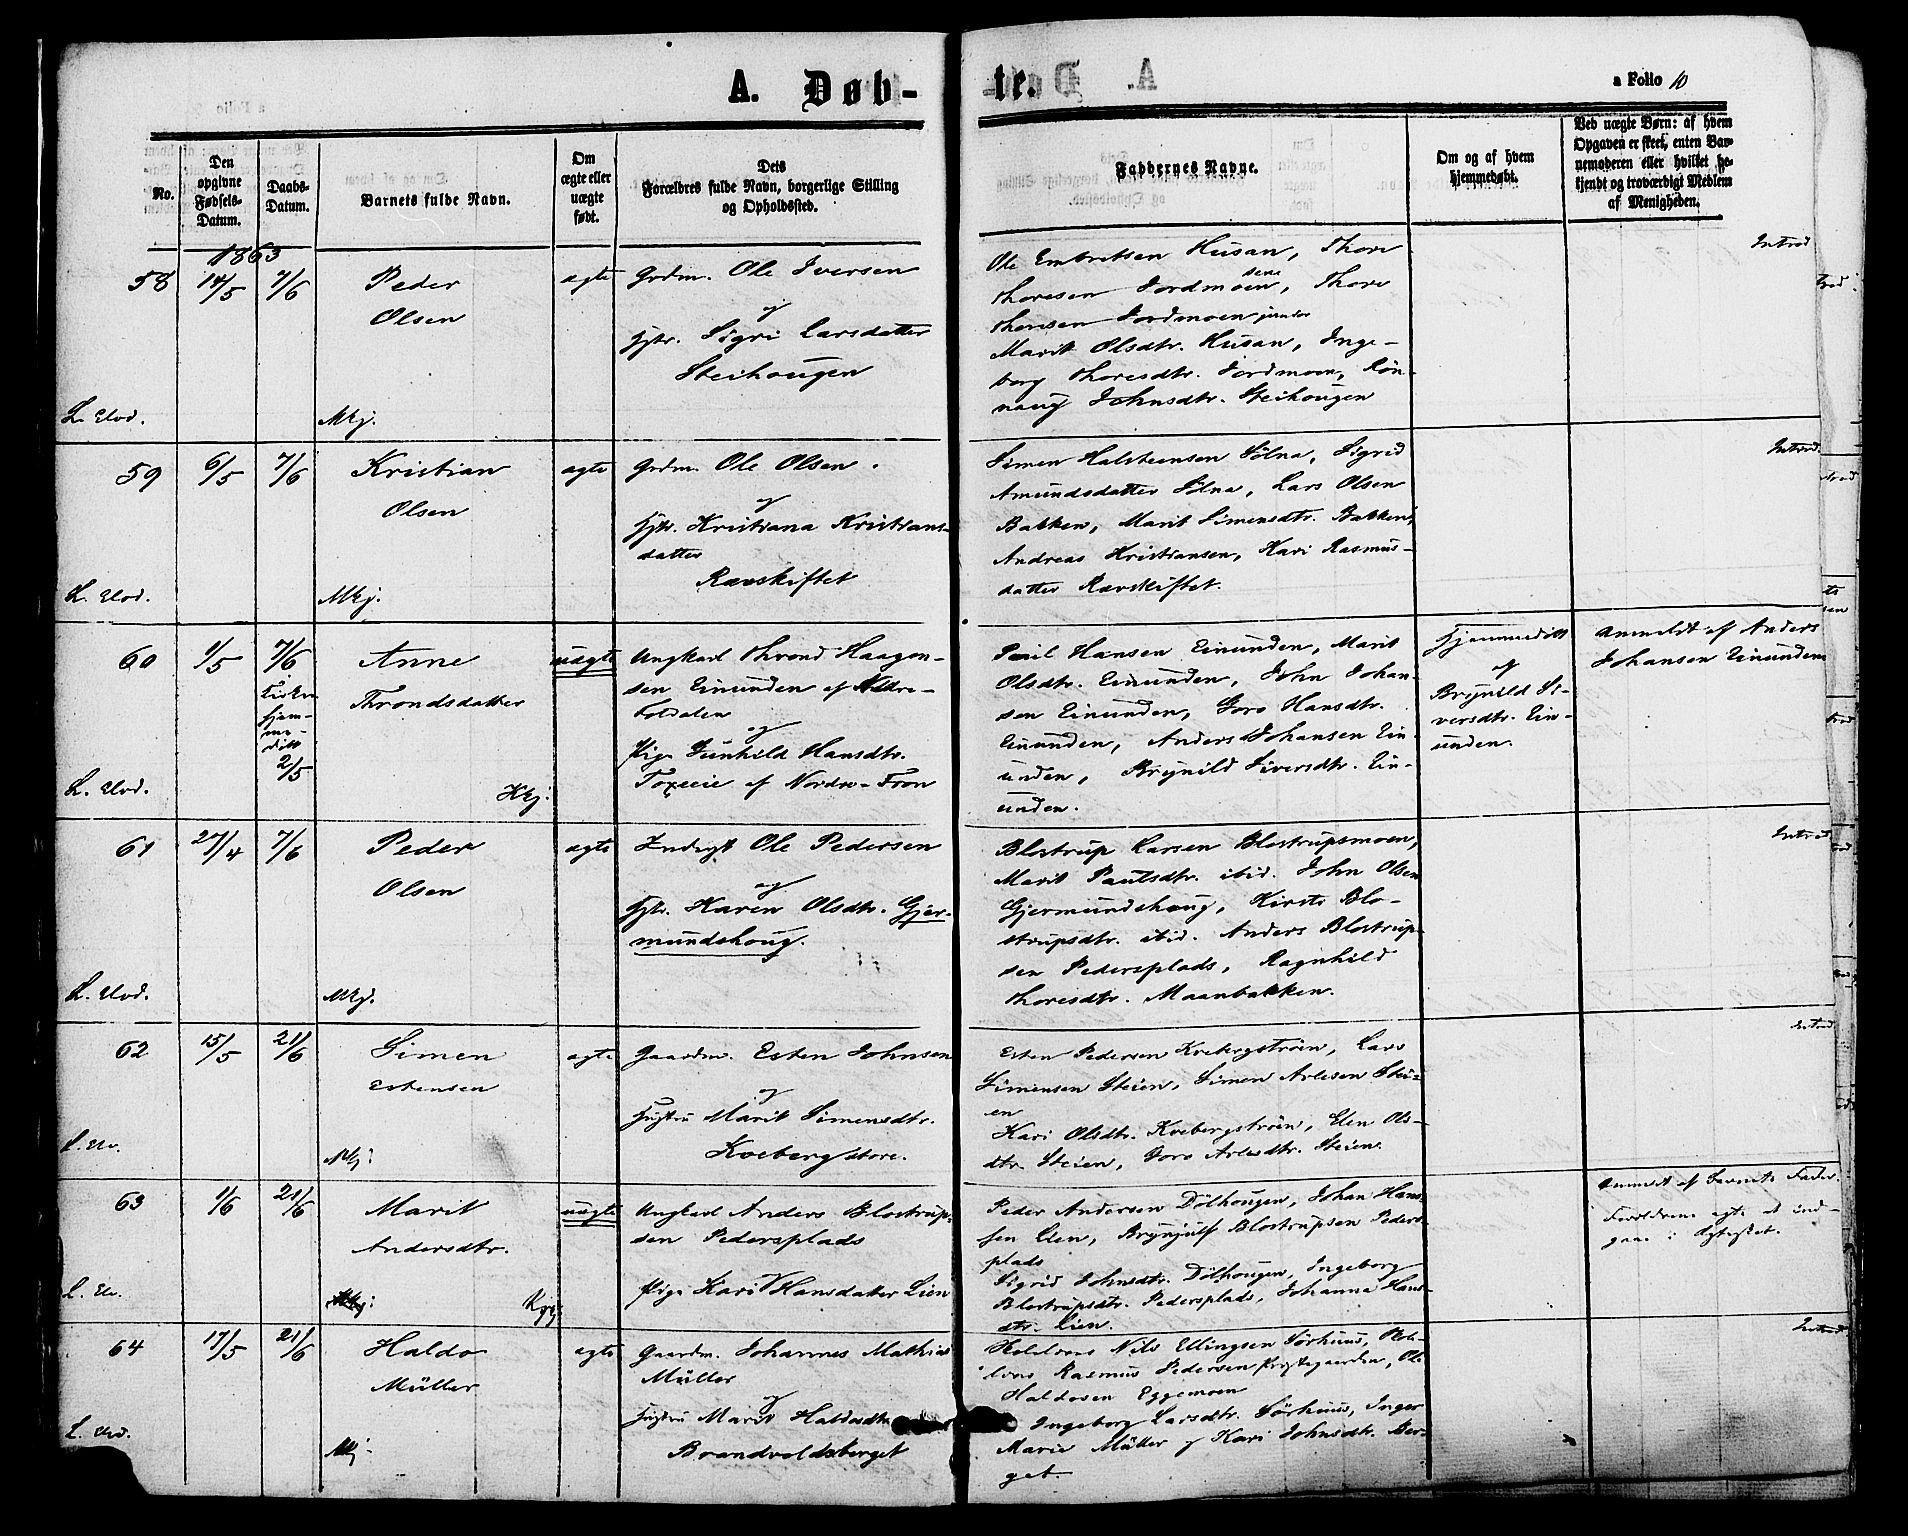 A. Døb-
te.
a Folio 10
No.
Den opgivne Fødsels-Datum.
Daabs-Datum.
Barnets fulde Navn.
Om ægte eller uægte født.
Dets Forældres fulde Navn, borgerlige Stilling og Opholdssted.
Faddernes Navne.
Om og af hvem hjemmedøbt.
Ved uægte Børn: af hvem Opgaven er skeet, enten Barnemoderen eller hvilket bekjendt og troværdigt Medlem af Menigheden.
1863
58
14/5
7/6
Peder
Olsen
Mkj.
ægte
Grdm. Ole Iversen
og
Hstr. Sigri Larsdatter
Steihougen
Ole Embretsen Husan, Thore
Thoresen Jordmoen sen., Thore
Thoresen Jordmoen junior
Marit Olsdtr. Husan, Inge-
borg Thoresdtr. Jordmoen, Rön-
naug Johnsdtr. Steihougen
Introd
59
6/5
7/6
Kristian
Olsen
Mkj.
ægte
Grdm. Ole Olsen.
og
Hstr. Kristiana Kristians-
datter
Rævskiftet
Simen Halsteensen Sölna, Sigrid
Amundsdatter Sölna, Lars Olsen
Bakken, Marit Simensdtr. Bakken,
Andreas Kristiansen, Kari Rasmus-
datter Rævskiftet.
Introd.
60
1/5
7/6
hjem-
me-
döbt
2/5
Anne
Throndsdatter
Kkj.
uægte
Ungkarl Thrond Haagen-
sen Einunden af Nedre-
Foldalen
og
Pige Gunhild Hansdtr.
af Nordre-Fron
Poul Hansen Einunden, Marit
Olsdtr. Einunden, John Johan-
sen Einunden, Goro Hansdtr.
Einunden, Anders Johansen Ein-
unden, Brynild Siversdtr. Ein-
unden.
Hjemmedöbt
af
Brynild Si-
versdtr. Ein-
unden.
Anmeldt af Anders
Johansen Einunden
61
27/4
7/6
Peder
Olsen
Mkj.
ægte
Inderst Ole Pedersen
og
Hstr. Karen Olsdtr. Gjer-
mundshoug.
Blostrup Larsen Blostrupsmoen,
Marit Paulsdtr. ibid. John Olsen
Gjermundshoug, Kirsti Blo-
strupsdtr. ibid. Anders Blostrup-
sen Pedersplads, Ragnhild
Thoresdtr. Maanbakken.
Introd
62
15/5
21/6
Simen
Estensen
Mkj.
ægte
Gaardm. Esten Johnsen
og
Hustru Marit Simensdtr.
Kvebergstöre.
Esten Pedersen Kvebergströen, Lars
Simensen Steien, Simen Arlesen Stei-
en
Kari Olsdtr. Kvebergströen, Elen Ols-
dtr. Steien, Goro Arlesdtr. Steien.
Introd
63
1/6
21/6
Marit
Andersdtr.
uægte
Ungkarl Anders Blostrup-
sen Pedersplads
Pige Kari Hansdatter Lien
Peder Andersen Dölhougen, Johan Han-
sen Lien, Brynjulf Blostrupsen Peders-
plads
Sigrid Johnsdtr. Dölhougen, Ingeborg
Blostrupsdtr. Pedersplads, Johanna Hans-
dtr. Lien.
Anmeldt af Barnets Fader.
Forældrene agte at ind-
gaae i Ægteskab.
64
17/5
21/6
Haldo
Müller
Mkj.
ægte
Gaardm. Johannes Mathias
Müller
og
Hustru Marit Haldosdtr.
Brandvoldsberget
Nils Ellingsen Sörhuus,
Rasmus Pedersen Prestegaarden, Ole
Haldosen Eggemoen
Ingeborg Larsdtr. Sörhuus, Inger
Marie Müller og Kari Johnsdtr. Ber-
get.
Introd